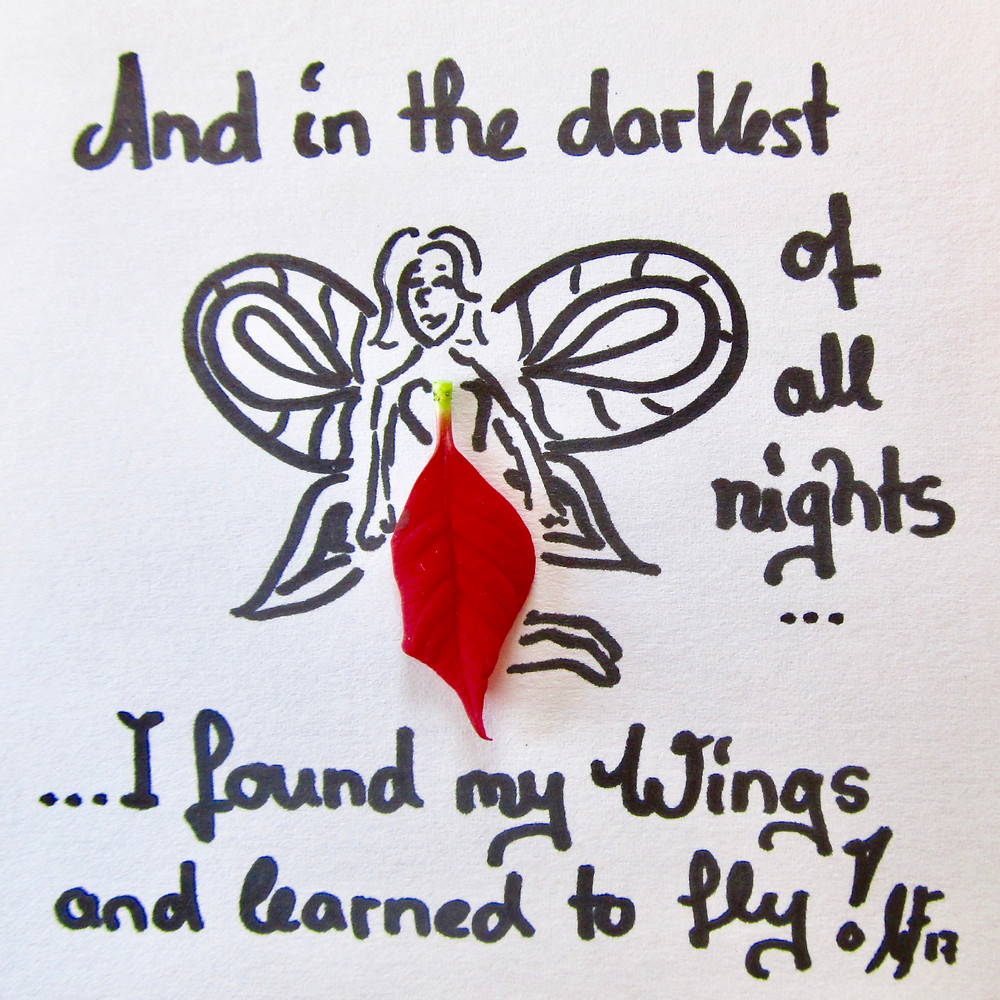 And in the darkest
of
all
nights
...
...I found my Wings
and learned to fly!